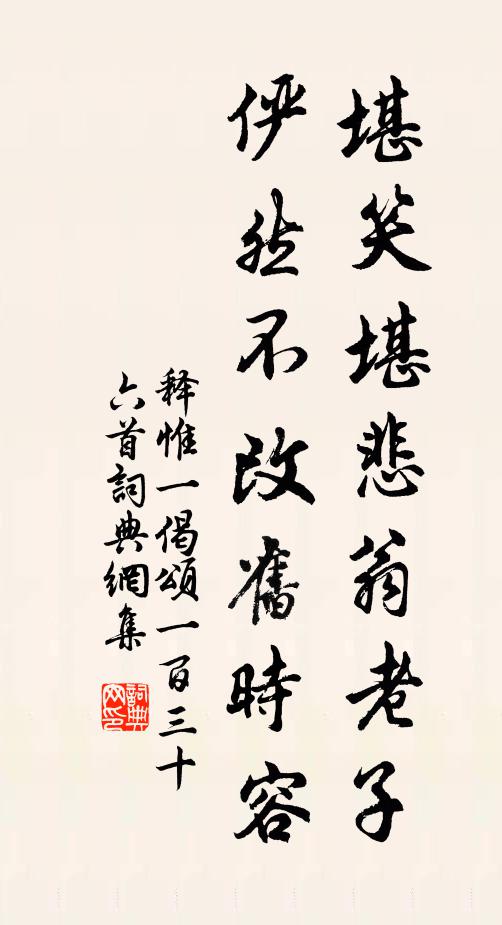 堪笑堪悲翁老子
俨然不改舊時容
释惟一偈頌一百三十
六首詞典網集
詞典
网印